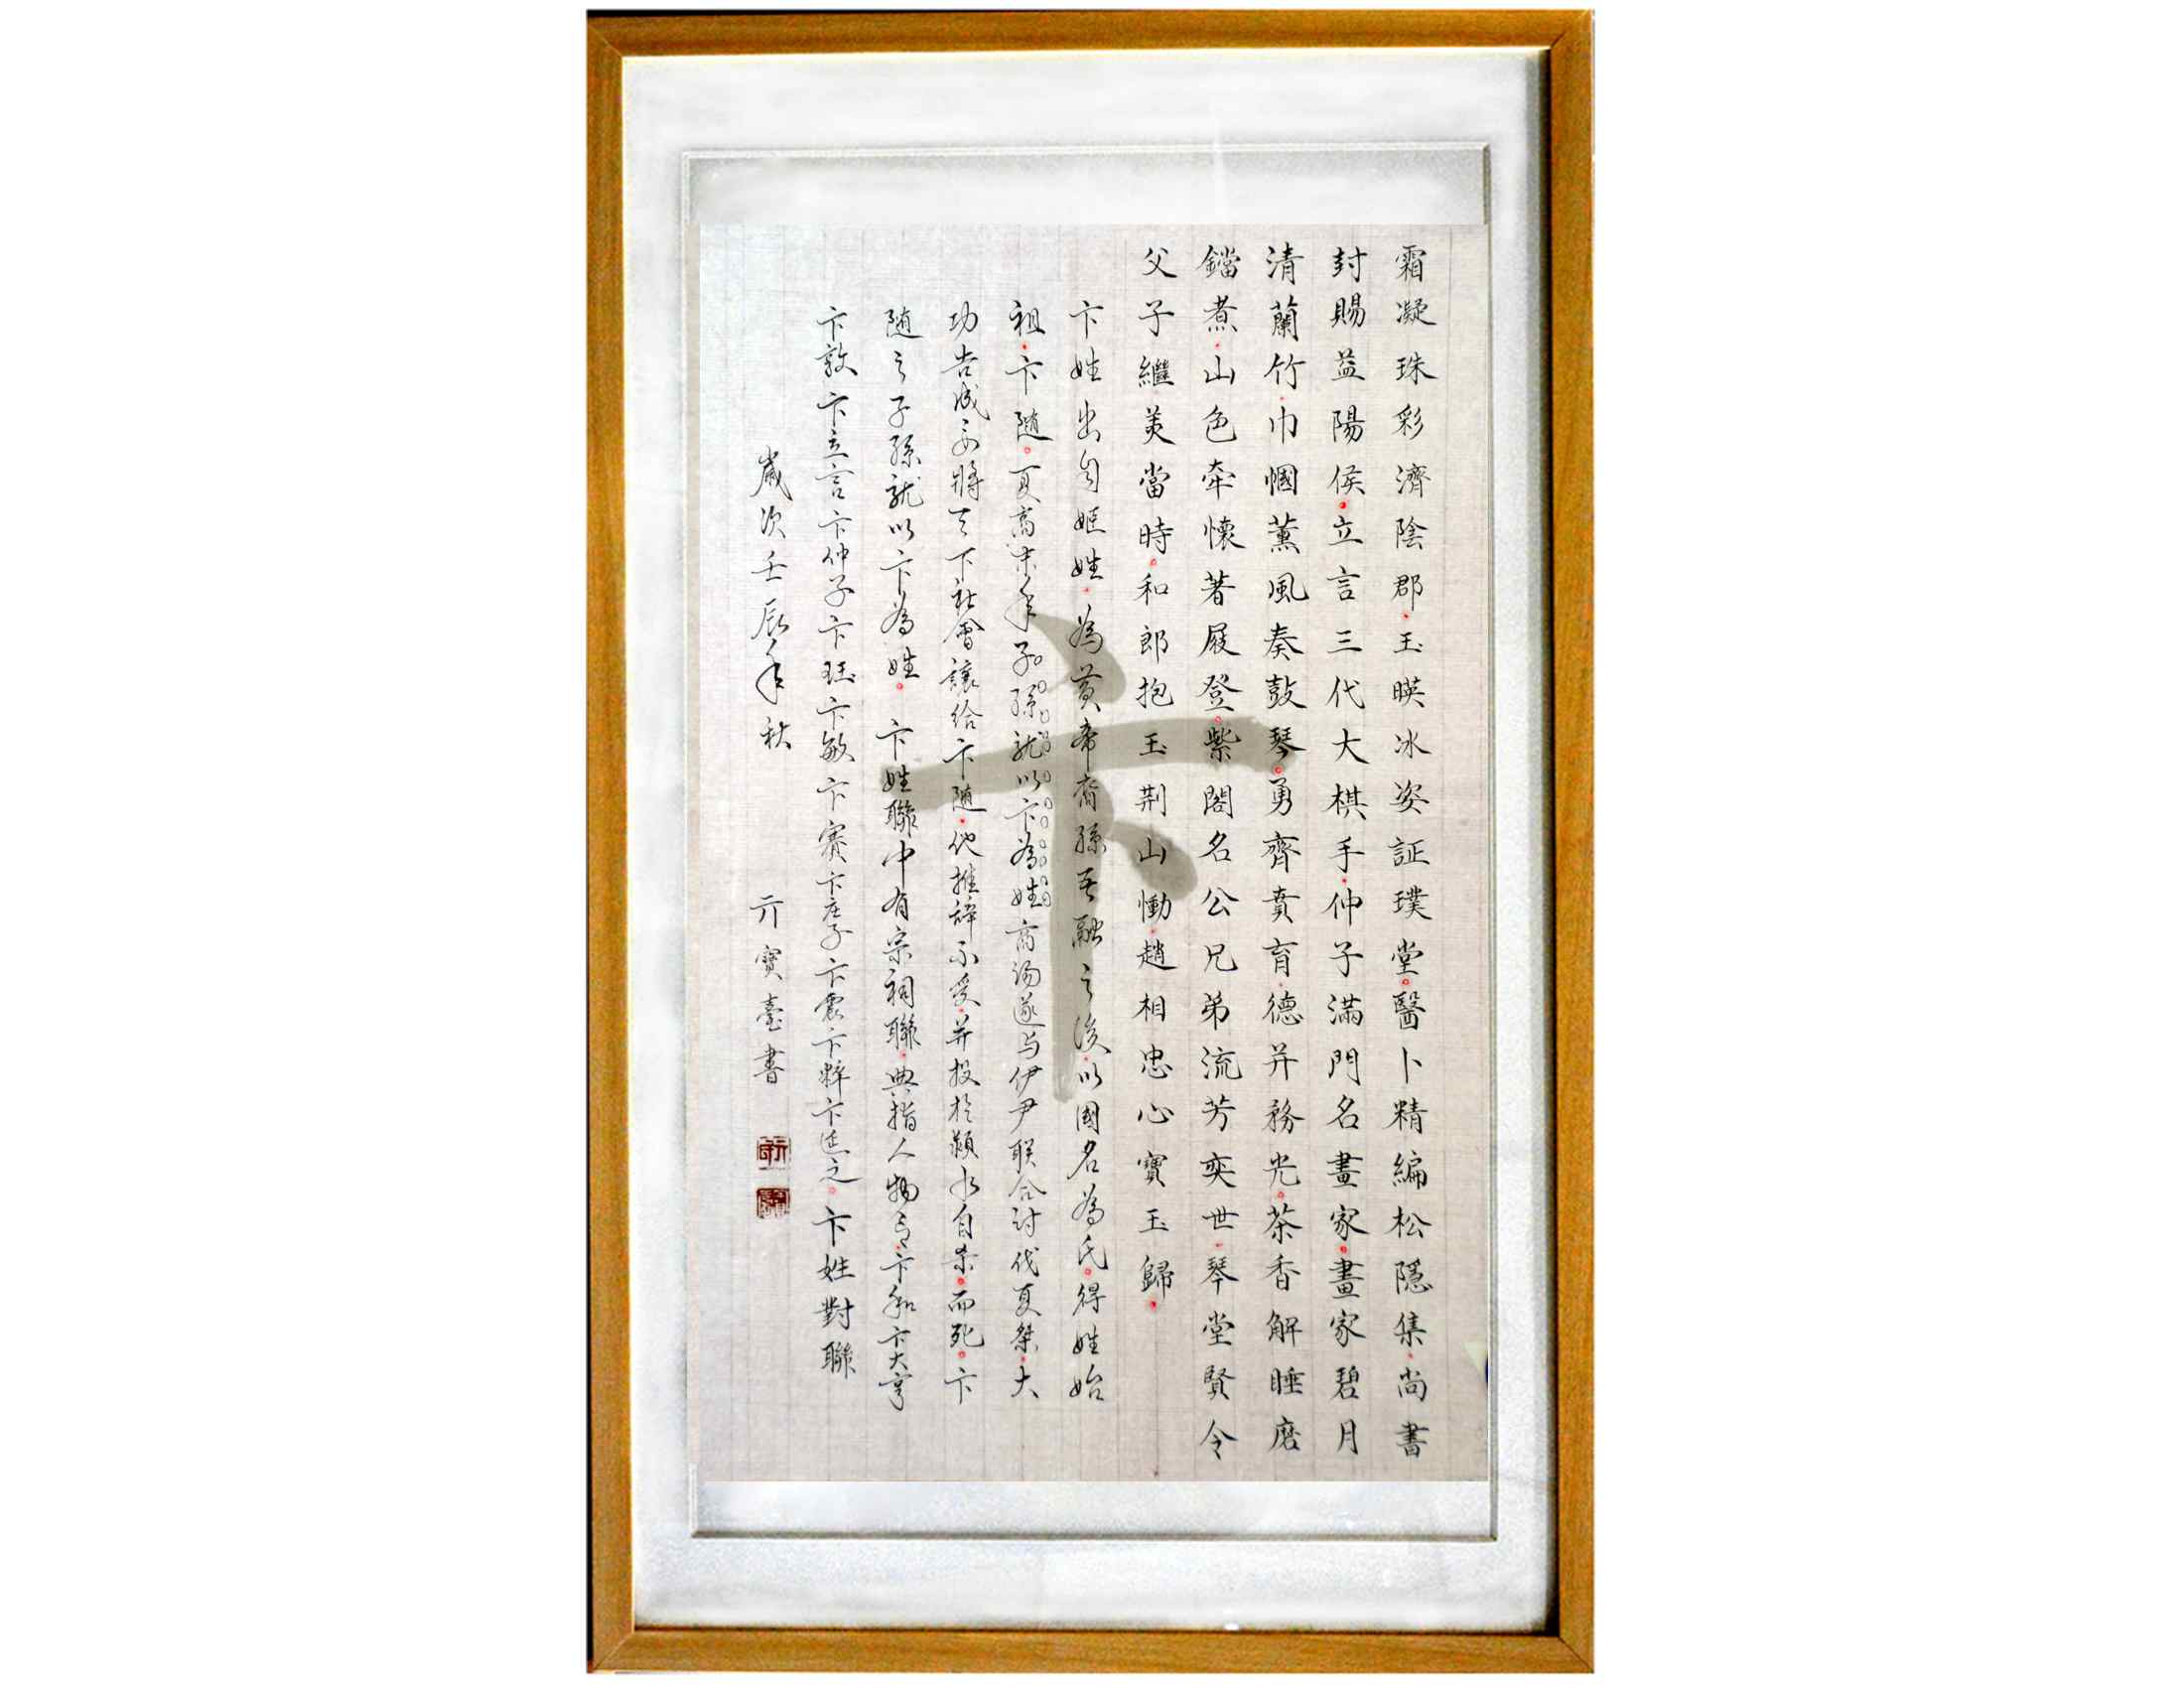 霜凝珠彩濟陰郡玉暎冰姿証璞堂醫卜精編松隱集尚書
封賜益陽侯立言三代大棋手仲子滿門名畫家畫家碧月
清蘭竹巾幗薰風奏鼓琴勇齊賁育德并務光茶香解睡磨
鐺煮山色牽懷著屐登紫閣名公兄弟流芳奕世琴堂賢令
父子繼美當時和郎抱玉荆山慟趙相忠心寶玉歸
卞姓出自姬姓為黄帝裔孫吾融之後以國名為氏得姓始
祖卞隨夏商末年子孫就以卞為姓商湯遂与伊尹联合討伐夏桀大
功告成云將天下社會讓给卞随他推辞不受并投於潁水自杀而死卞
随之子孫就以卞為姓卞姓聯中有宗祠聯典指人物有卞和卞大亨
卞敦卞立言卞仲子卞珏卞敏卞賽卞庄子卞震卞粹卞廷之卞姓對聯
歲次壬辰年秋 亓寶臺書
卞